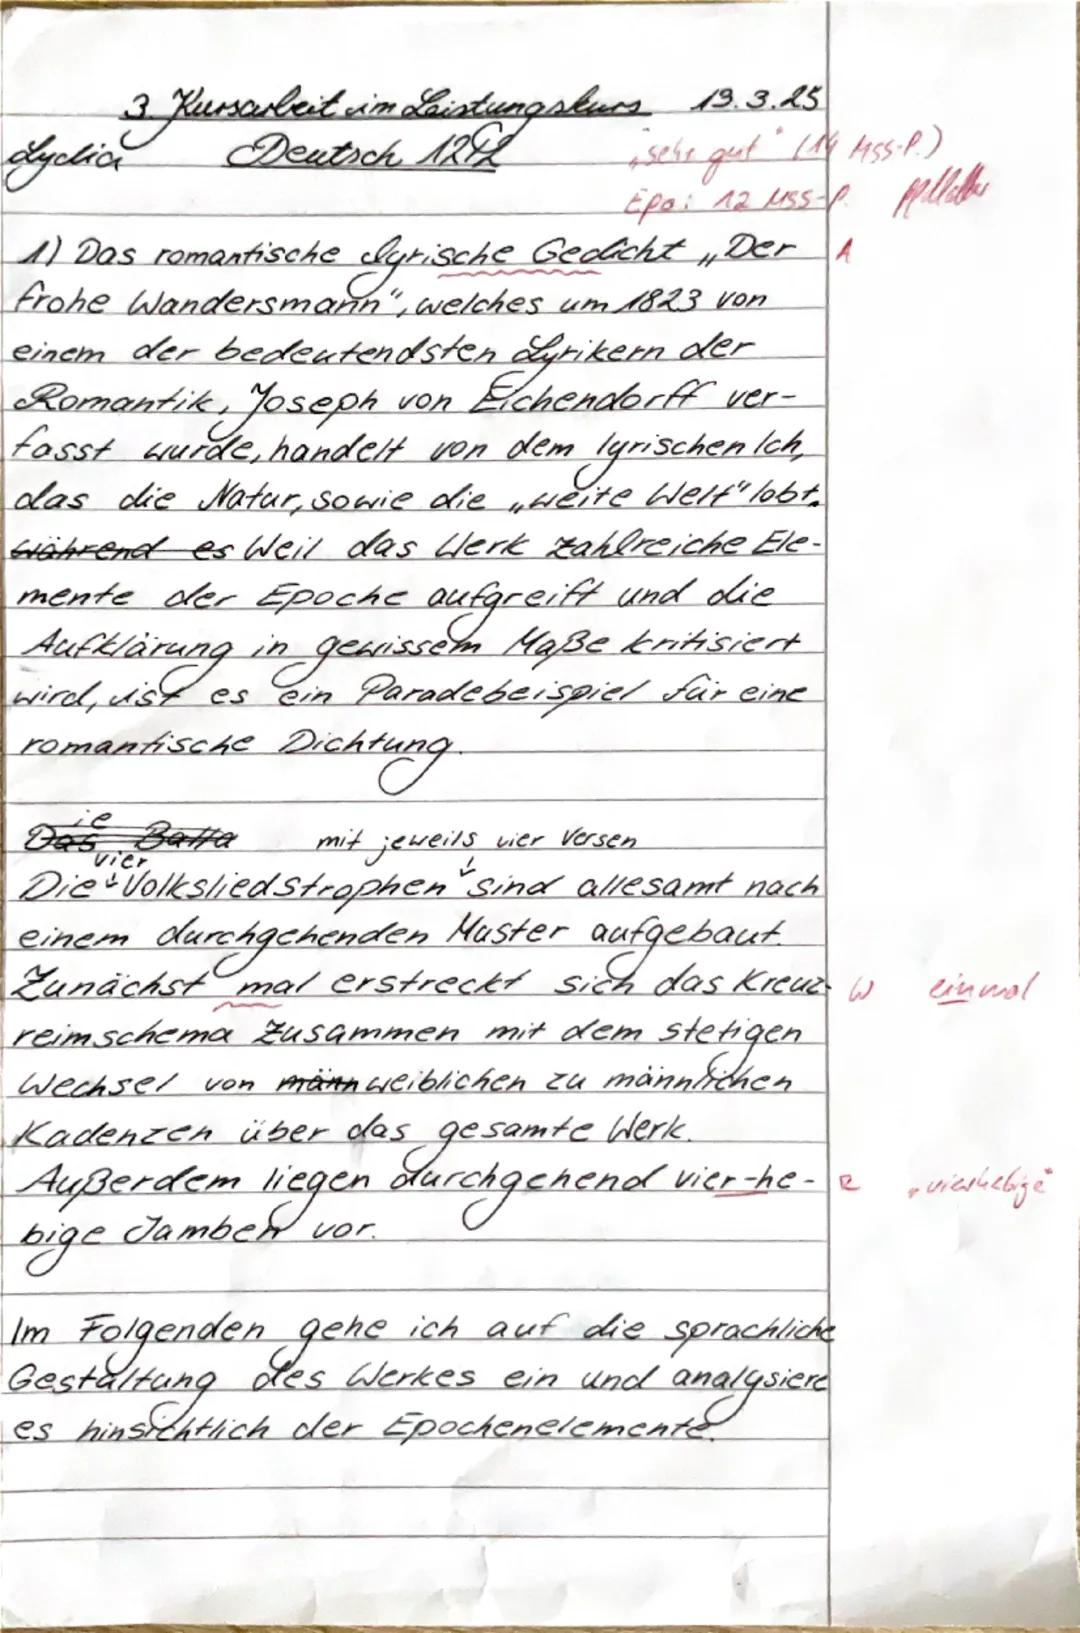 3. Kursarbeit im Leistungskurs 19.3.25
Lydia Deutsch 12
"sehr gut" (14 MSS-P.)
Epo: 12 MSS-P.
1) Das romantische lyrische Gedicht „Der A
frohe Wandersmann", welches um 1823 von
einem der bedeutendsten Lyrikern der
Romantik, Joseph von Eichendorff ver-
fasst wurde, handelt von dem lyrischen Ich,
das die Natur, sowie die „weite Welt" lobt.
während es Weil das Werk zahlreiche Ele-
mente der Epoche aufgreift und die
Aufklärung in gewissem Maße kritisiert
wird, ist es ein Paradebeispiel für eine
romantische Dichtung.
ie
Das Balla mit jeweils vier Versen
vier
Die Volksliedstrophen sind allesamt nach
einem durchgehenden Muster aufgebaut.
Zunächst mal erstreckt sich das Kreuz- W einmal
reimschema zusammen mit dem stetigen
Wechsel von männ weiblichen zu männlichen
Kadenzen über das gesamte Werk.
Außerdem liegen durchgehend vier-he- R „vierhebige"
bige Jamben vor.
Im Folgenden gehe ich auf die sprachliche
Gestaltung des Werkes ein und analysiere
es hinsichtlich der Epochenelemente.